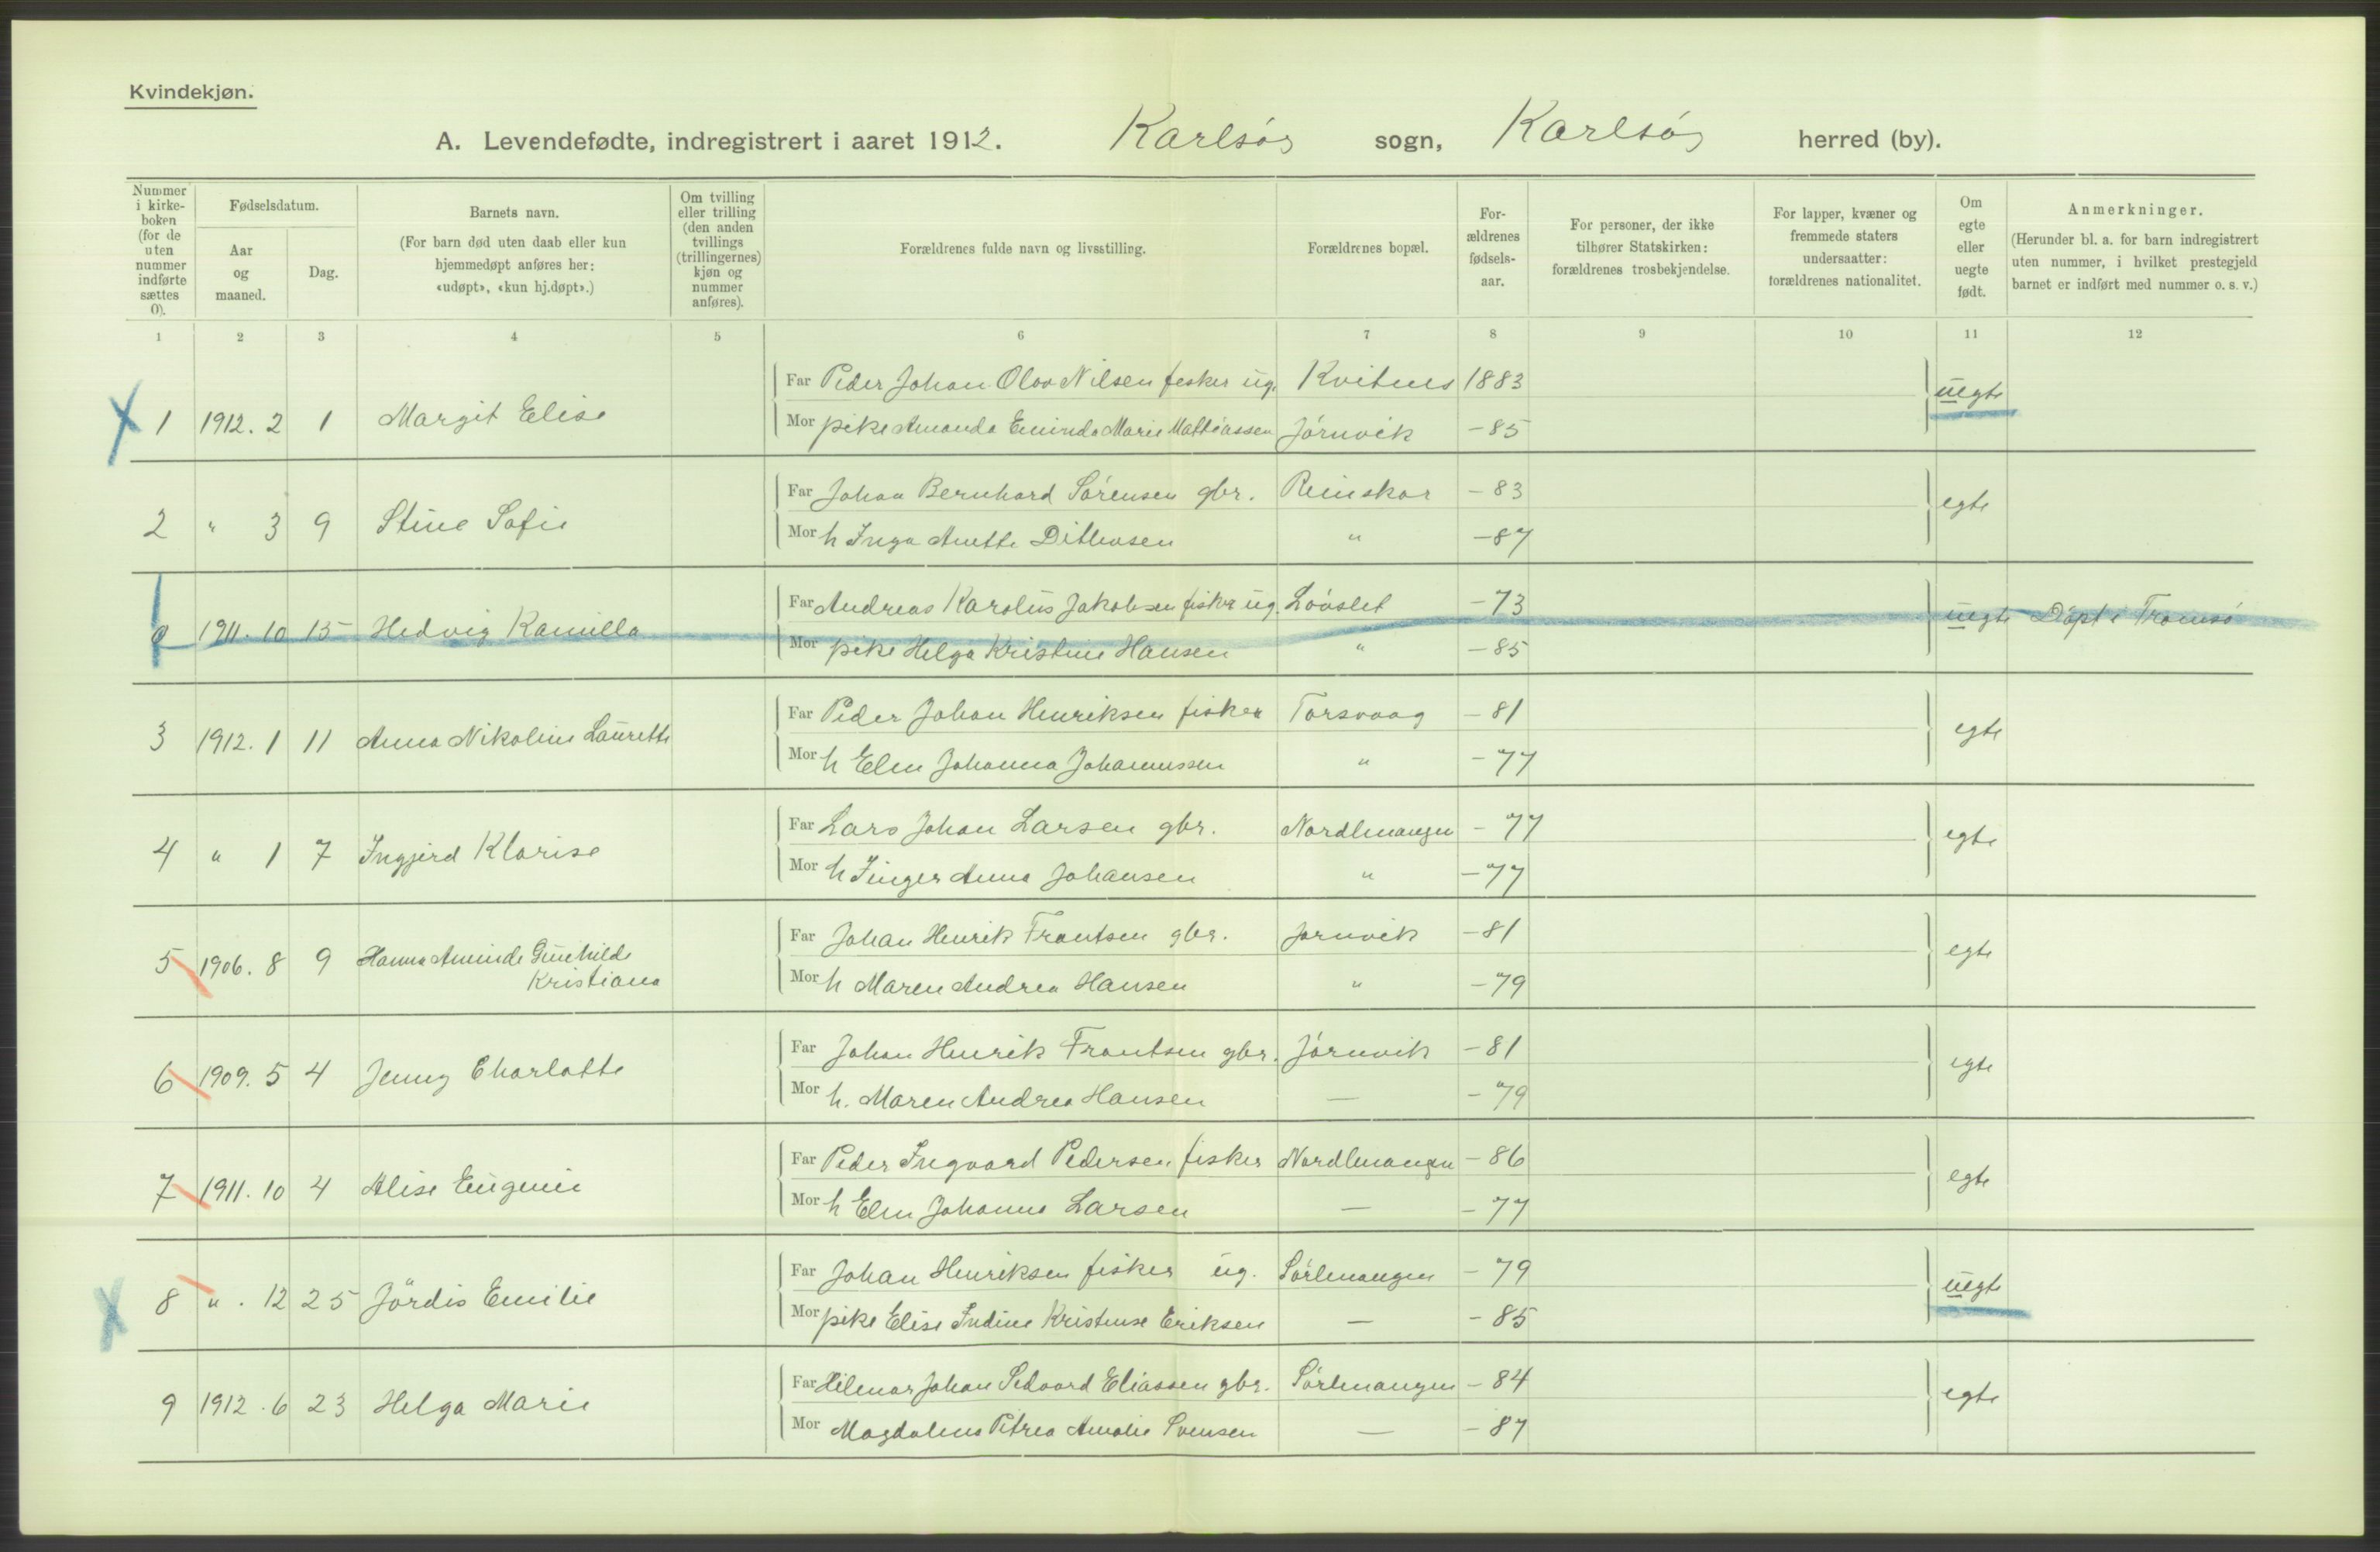 Kvindekjøn.
A. Levendefødte, indregistrert i aaret 1912. Karlsöy sogn, Karlsöy herred (by).
Nummer i kirke-boken (for de uten nummer indførte sættes 0).
Fødselsdatum.
Aar og maaned.
Dag.
Barnets navn.
(For barn død uten daab eller kun hjemmedøpt anføres her: «udøpt», «kun hj.døpt».)
Om tvilling eller trilling (den anden tvillings (trillingernes) kjøn og nummer anføres).
Forældrenes fulde navn og livsstilling.
Forældrenes bopæl.
For-ældrenes fødsels-aar.
For personer, der ikke tilhører Statskirken: forældrenes trosbekjendelse.
For lapper, kvæner og fremmede staters undersaatter: forældrenes nationalitet.
Om egte eller uegte født.
Anmerkninger.
(Herunder bl. a. for barn indregistrert uten nummer, i hvilket prestegjeld barnet er indført med nummer o. s. v.)
1 2 3 4 5 6 7 8 9 10 11 12
Far Peder Johan Olav Nilsen fisker ug. Kvitnes 1883
1 1912. 2 1 Margit Elise uegte
Mor pike Amanda Eminda Marie Mathiassen Jörnvik -85
Far Johan Bernhard Sörensen gbr. Reinskar -83
2 " 3 9 Stine Sofie egte
Mor h Inga Anette Ditlevsen " -87
Far Andreas Karolus Jakobsen fisker ug. Lövslet -73
0 1911. 10 15 Hedvig Kamilla uegte Döpt i Tromsö
Mor pike Helga Kristine Hansen " -85
Far Peder Johan Henriksen fisker Torsvaag -81
3 1912. 1 11 Anna Nikoline Laurette egte
Mor h Elen Johanna Johannessen " -77
Far Lars Johan Larsen gbr. Nordlenangen -77
4 " 1 7 Ingjerd Klarise egte
Mor h Inger Anna Johansen " -77
Far Johan Henrik Frantsen gbr. Jörnvik -81
5 1906. 8 9 Hanna Aminde Gunhilde Kristiana egte
Mor h Maren Andrea Hansen " -79
Far Johan Henrik Frantsen gbr. Jörnvik -81
6 1909. 5 4 Jenny Charlotte egte
Mor h. Maren Andrea Hansen — -79
Far Peder Ingvard Pedersen fisker Nordlenangen -86
7 1911. 10 4 Alise Eugenie egte
Mor h Elen Johanna Larsen — -77
Far Johan Henriksen fisker ug. Sörlenangen -79
8 " . 12 25 Jördis Emilie uegte
Mor pike Elise Indine Kristense Eriksen — -85
Far Hilmar Johan Sedvard Eliassen gbr. Sörlenangen -84
9 1912. 6 23 Helga Marie egte
Mor Magdalena Petrea Amalie Svensen — -87